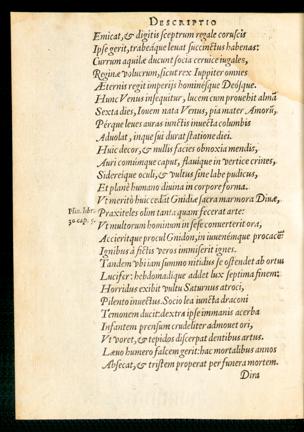 DESCRIPTIO
Emicat, & digitis sceptrum regale coruscis
Ipse gerit, trabeáque leuat succinctus habenas:
Currum aquilæ ducunt socia ceruice iugales,
Reginæ volucrum, sicut rex Iuppiter omnes
Æternis regit imperijs hominesque Deósque.
Hunc Venus insequitur, lucem cum prouehit almā
Sexta dies, Iouem nata Venus, pia mater Amorū,
Pérque leues auras iunctis inuecta columbis
Aduolat, inque sui durat statione diei.
Huic decor, & nullis facies obnoxia mendis,
Auri comæque caput, flauique in vertice crines,
Sidereique oculi, & vultus sine labe pudicus,
Et planè humano diuina in corpore forma.
Vt meritò huic cedāt Gnidiæ sacra marmora Diuæ,
Plin. libr.
36 cap. 5.
Praxiteles olim tanta quam fecerat arte:
Vt multorum hominum in sese conuerterit ora,
Accieritque procul Gnidon, in iuuenémque procacē
Ignibus à fictis veros immiserit ignes.
Tandem vbi iam summo nitidus se ostendet ab ortu
Lucifer: hebdomadique addet lux septima finem:
Horridus exibit vultu Saturnus atroci,
Pilento inuectus. Socio lea iuncta draconi
Temonem ducit: dextra ipse immanis acerba
Infantem prensum crudeliter admouet ori,
Vt voret, & tepidos discerpat dentibus artus.
Læuo humero falcem gerit: hac mortalibus annos
Absecat, & tristem properat per funera mortem.
Dira